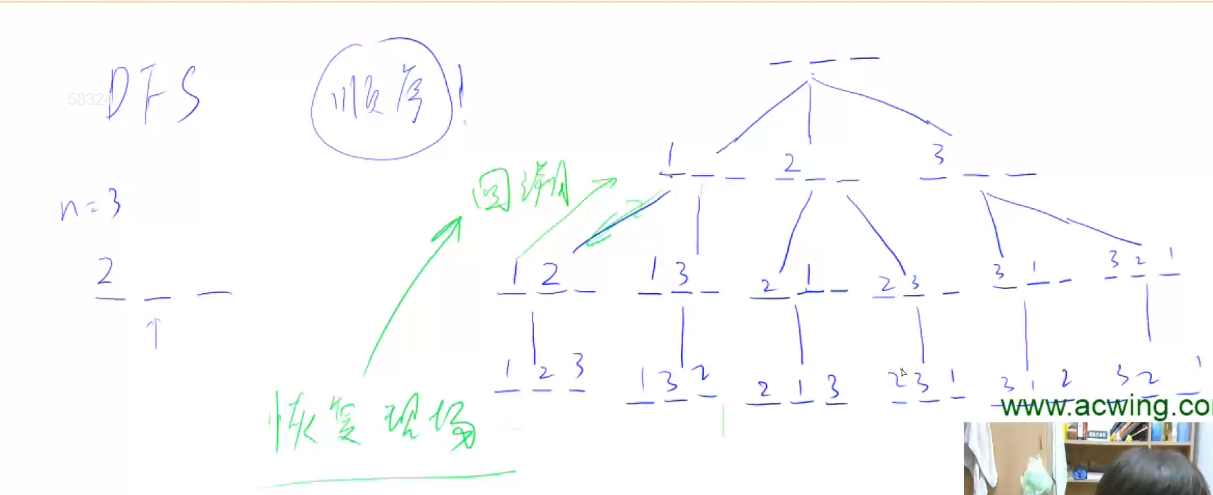 DFS 顺序!
58324
n=3
2 _ _
↑
回溯
恢复现场
_ _ _
1 _ _ 2 _ _ 3 _ _
1 2 _ 1 3 _ 2 1 _ 2 3 _ 3 1 _ 3 2 1
1 2 3 1 3 2 2 1 3 2 3 1 3 1 2 3 2 1
www.acwing.co